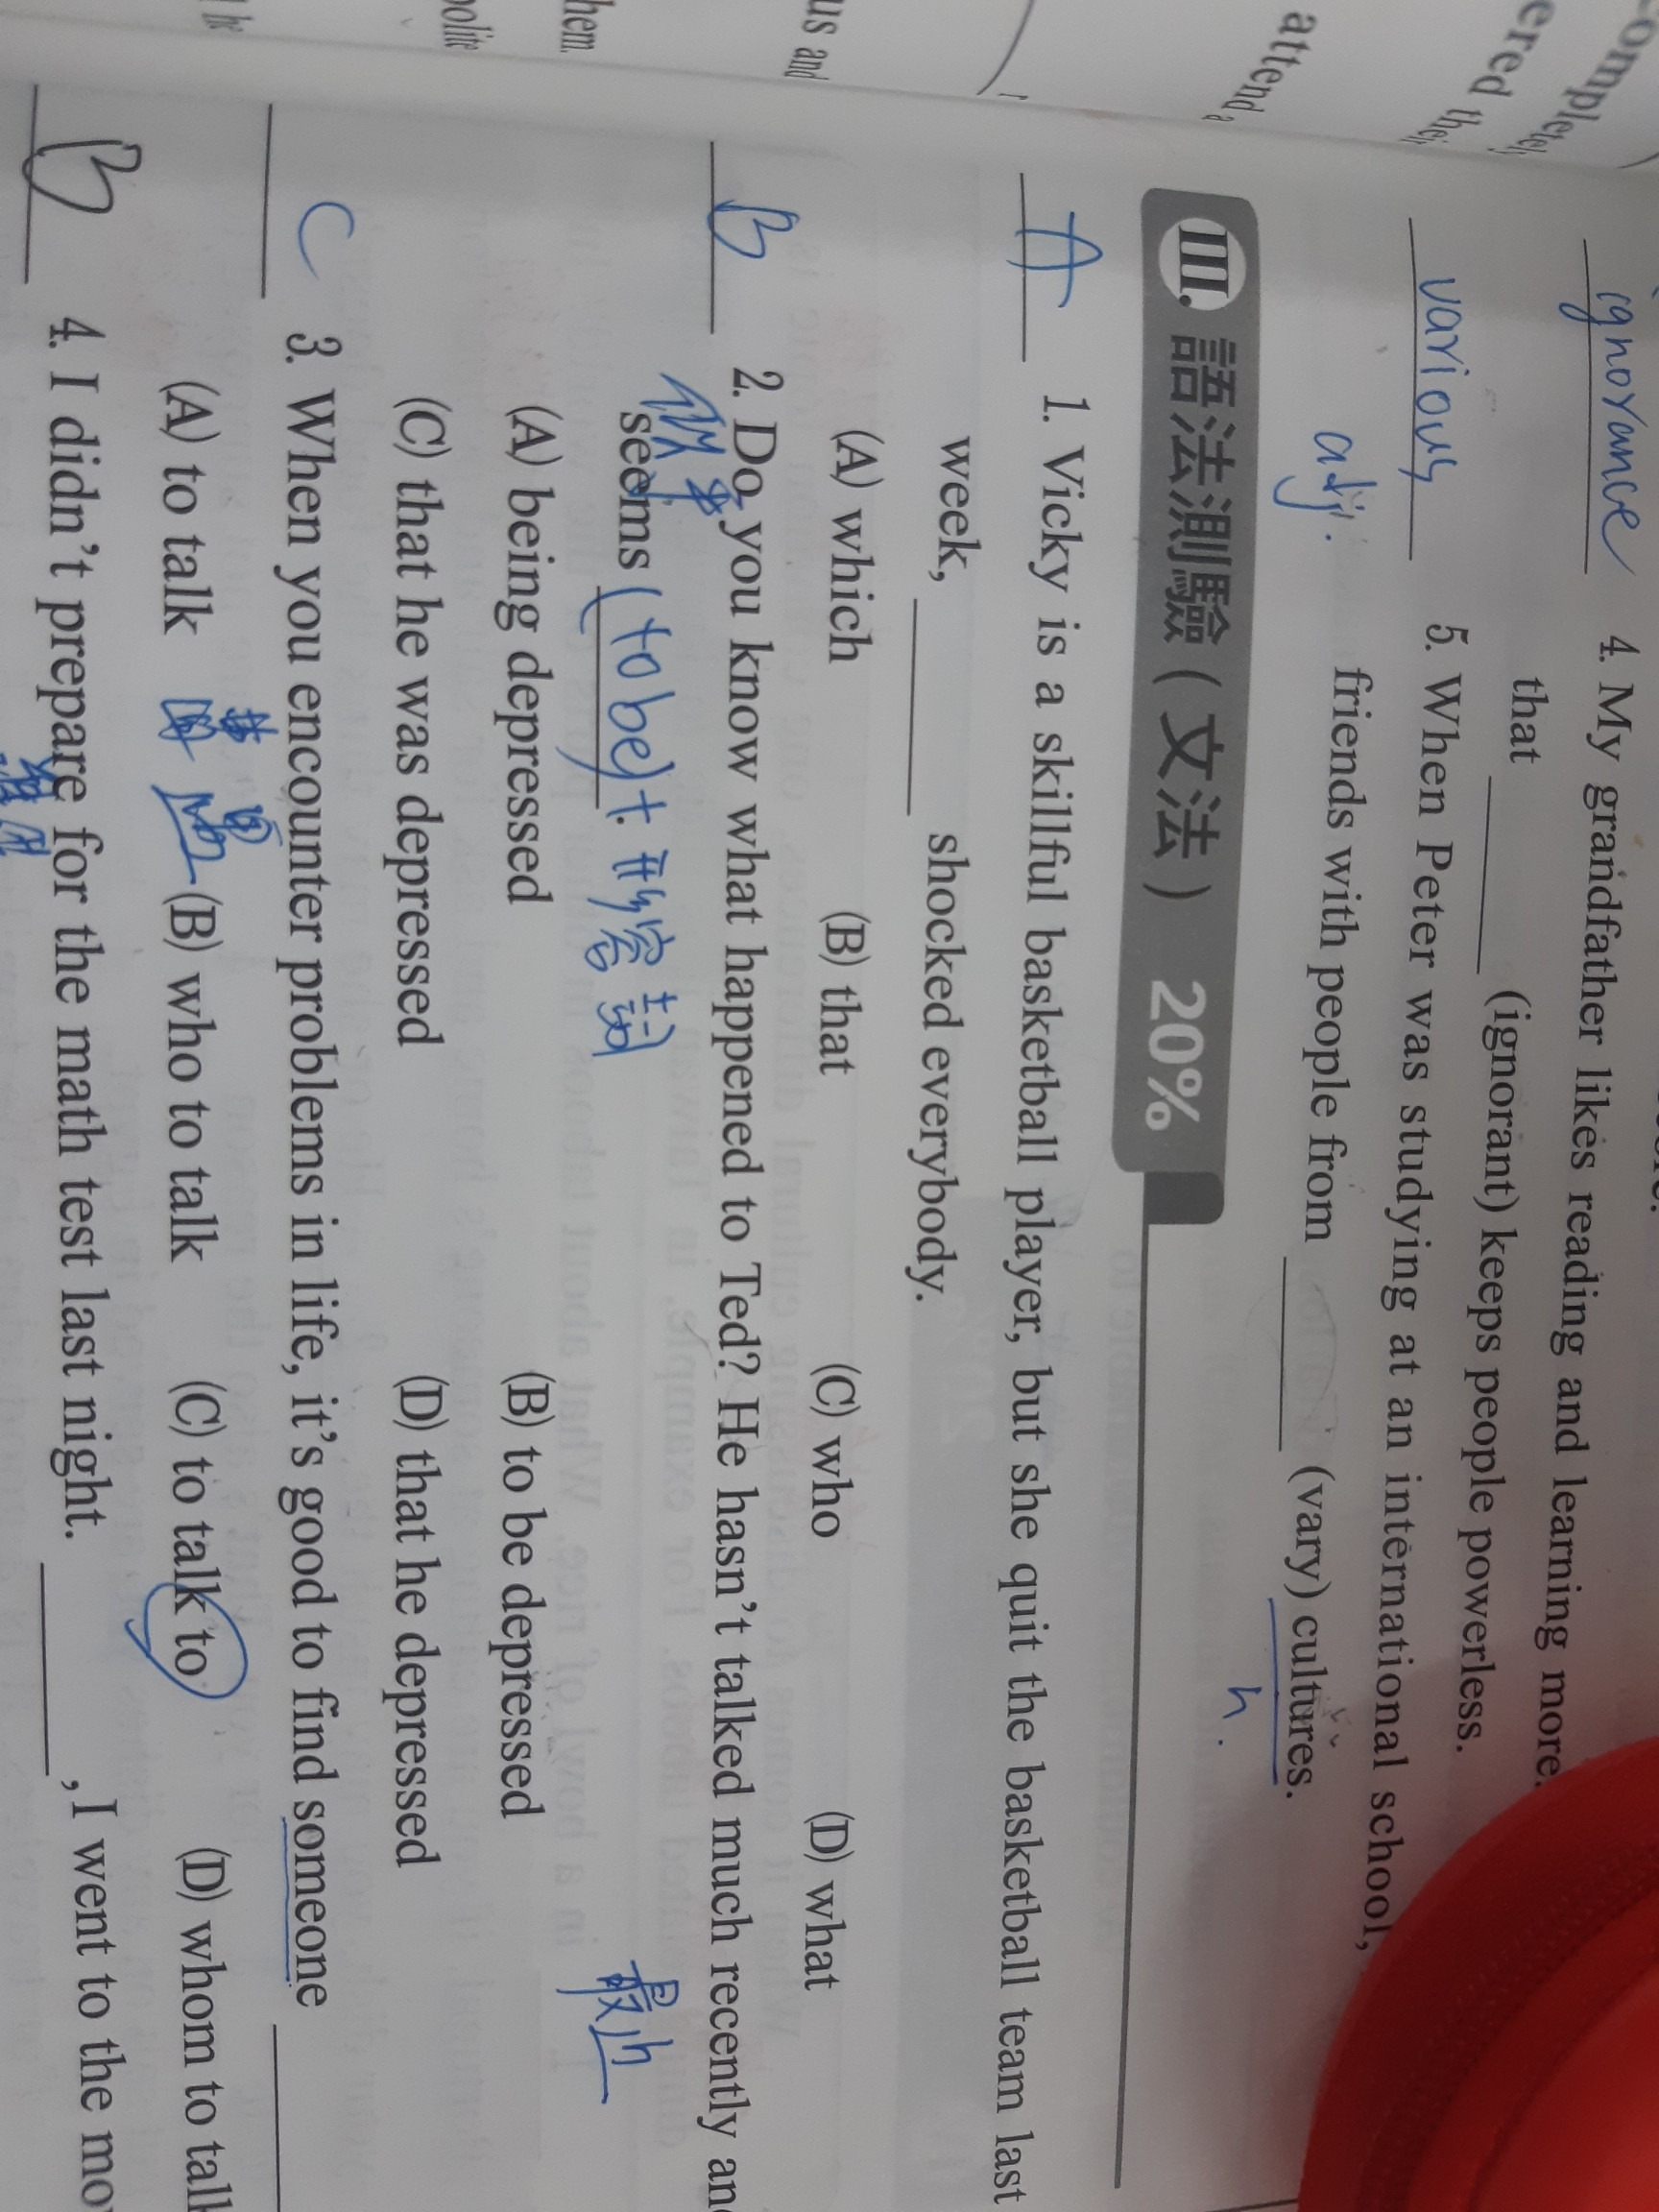 complete,
ered their
attend a
us and
them.
polite
he
ignorance 4. My grandfather likes reading and learning more.
that ______ (ignorant) keeps people powerless.
various 5. When Peter was studying at an international school,
adj. friends with people from ______ (vary) cultures.
n.
III. 語法測驗(文法) 20%
A 1. Vicky is a skillful basketball player, but she quit the basketball team last
week, ______ shocked everybody.
(A) which (B) that (C) who (D) what
B 2. Do you know what happened to Ted? He hasn't talked much recently and
seems (to be)+
(A) being depressed (B) to be depressed
(C) that he was depressed (D) that he depressed
C 3. When you encounter problems in life, it's good to find someone ______
(A) to talk (B) who to talk (C) to talk to (D) whom to talk
B 4. I didn't prepare for the math test last night. ______, I went to the mo